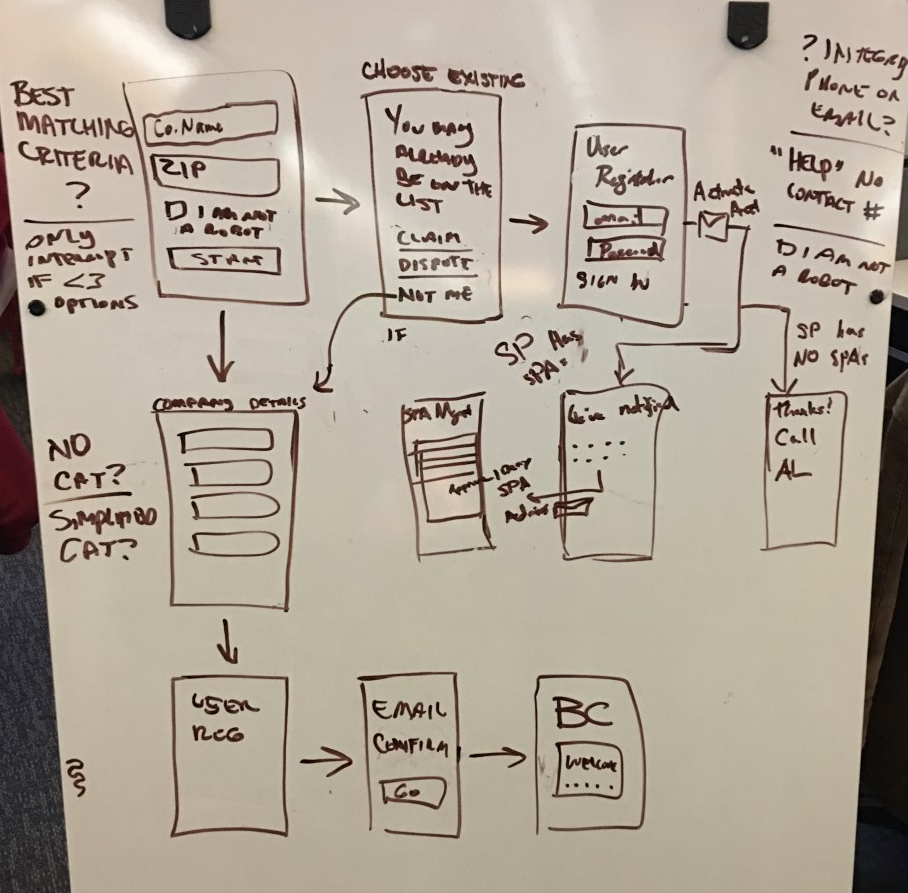 BEST
MATCHING
CRITERIA
?
ONLY
INTERCEPT
IF <3
OPTIONS
Co. Name
ZIP
I AM NOT
A ROBOT
START
CHOOSE EXISTING
YOU MAY
ALREADY
BE ON THE
LIST
CLAIM
DISPUTE
NOT ME
IF
User
Registration
email
Password
SIGN IN
Activate
Acct
? INTEGRQ
PHONE OR
EMAIL?
"HELP" NO
CONTACT #
I AM NOT
A ROBOT
SP Has
SPAs
SP has
NO SPAs
COMPANY DETAILS
NO
CAT?
SIMPLIFIED
CAT?
SPA Mgmt
Approve / Deny
SPA
We've notified
Thanks!
Call
AL
USER
REG
EMAIL
CONFIRM
GO
BC
WELCOME